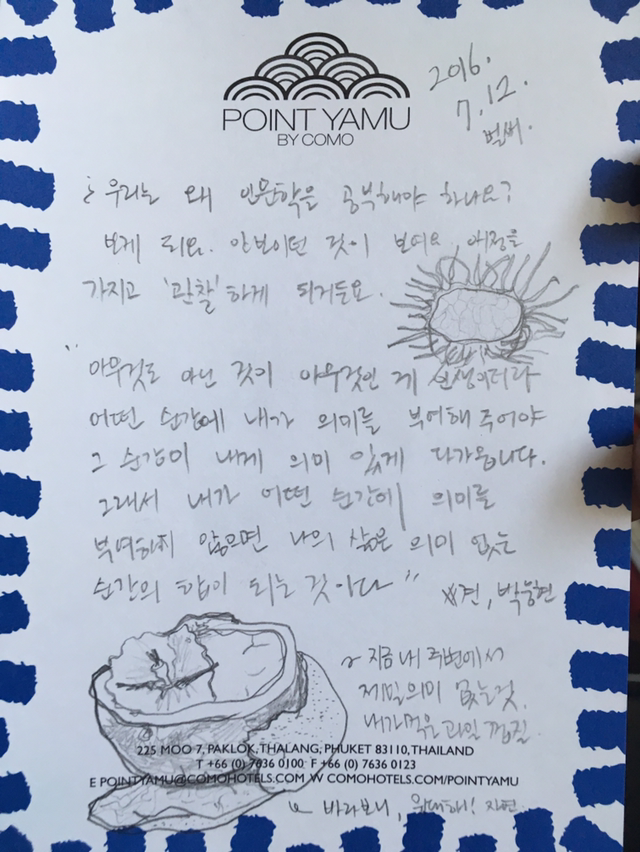 POINT YAMU
BY COMO
2016.
7.12.
벌써.
우리는 왜 인문학을 공부해야 하나요?
보게 되요. 안보이던 것이 보여요, 애정을
가지고 '관찰'하게 되거든요.
"아무것도 아닌 것이 아무것인 게 인생이더라
어떤 순간에 내가 의미를 부여해 주어야
그 순간이 내게 의미 있게 다가옵니다.
그래서 내가 어떤 순간에 의미를
부여하지 않으면 나의 삶은 의미 없는
순간의 합이 되는 것이다"
※견, 박웅현
~ 지금 내 주변에서
제일 의미 없는 것.
내가 먹은 과일 껍질.
225 MOO 7, PAKLOK, THALANG, PHUKET 83110, THAILAND
T +66 (0) 7636 0100 F +66 (0) 7636 0123
E POINTYAMU@COMOHOTELS.COM W COMOHOTELS.COM/POINTYAMU
바라보니, 위대해!